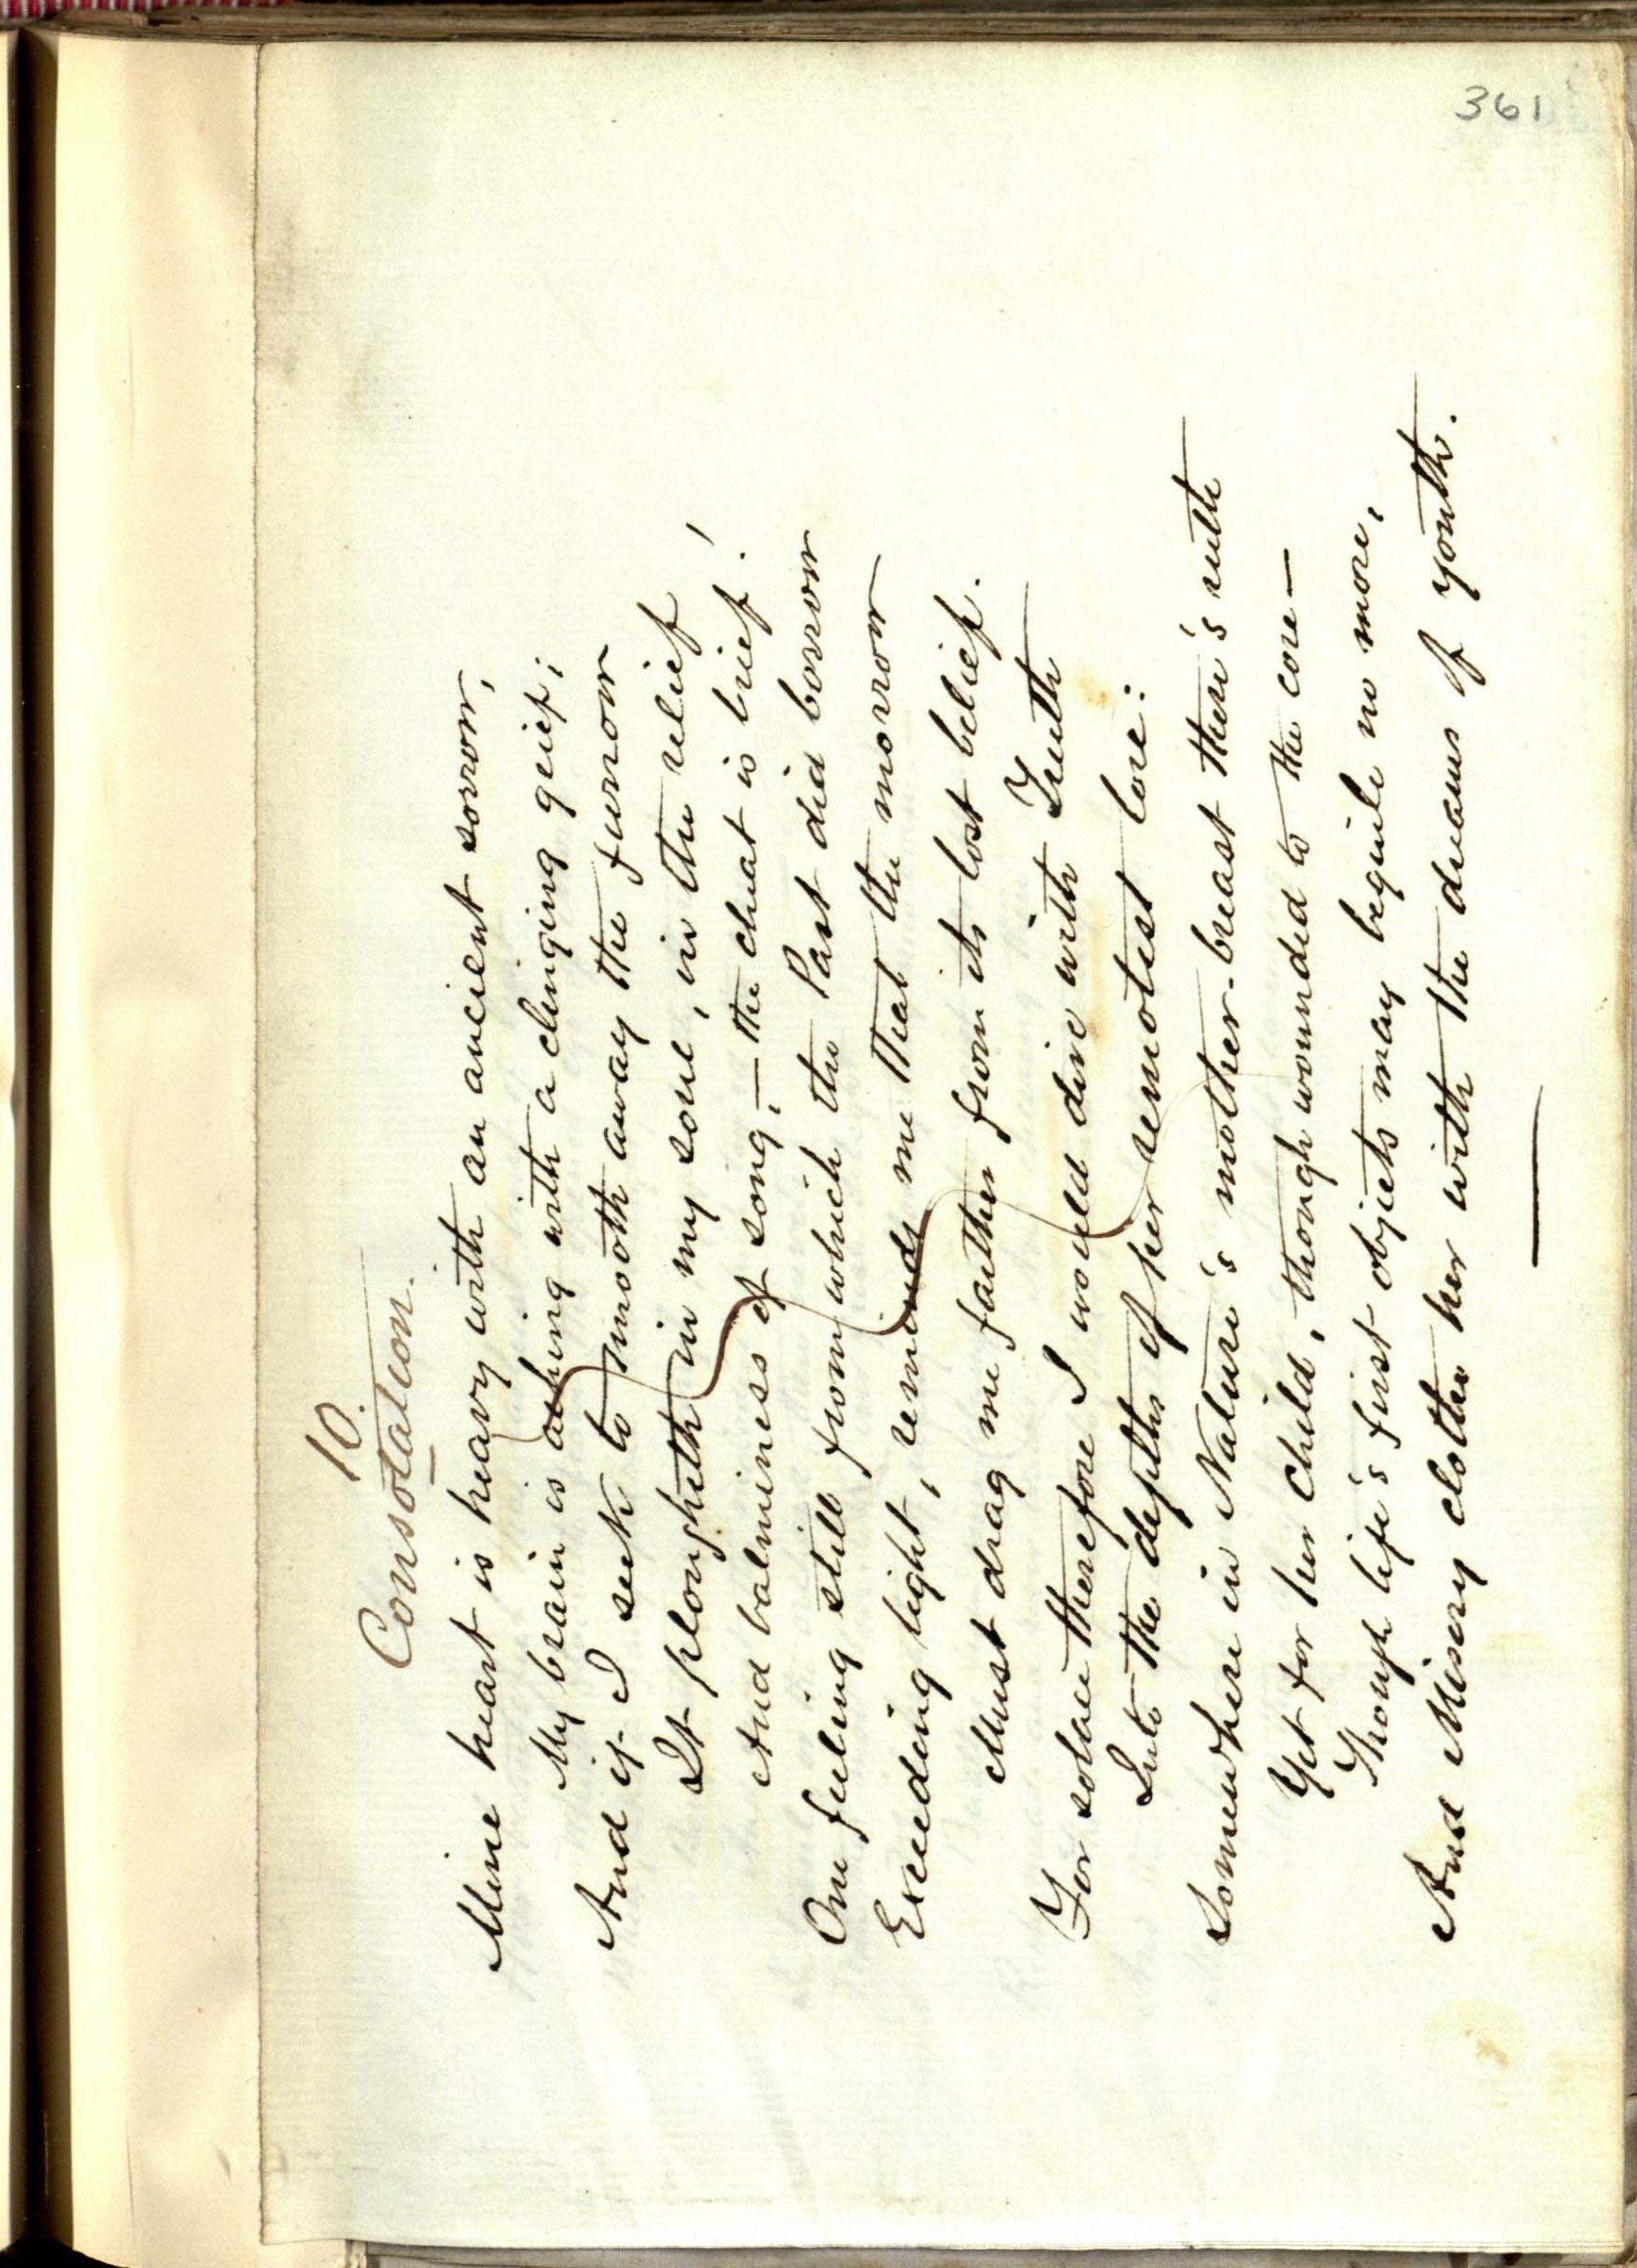 361
10.
Consolation.
Mine heart is heavy with an ancient sorrow,
My brain is aching with a clinging grief;
And if I seek to smooth away the furrow
It plougheth in my soul, in the relief
And balminess of song,— the cheat is brief!
One feeling still from which the Past did borrow
Exceeding light, reminds me that the morrow
Must drag me farther from its lost belief.
For solace therefore I would dive with Truth
Into the depths of her remotest lore:
Somewhere in Nature's mother-breast there's ruth
Yet for her child, though wounded to the core—
Though life's first objects may beguile no more,
And Misery clothe her with the dreams of youth.